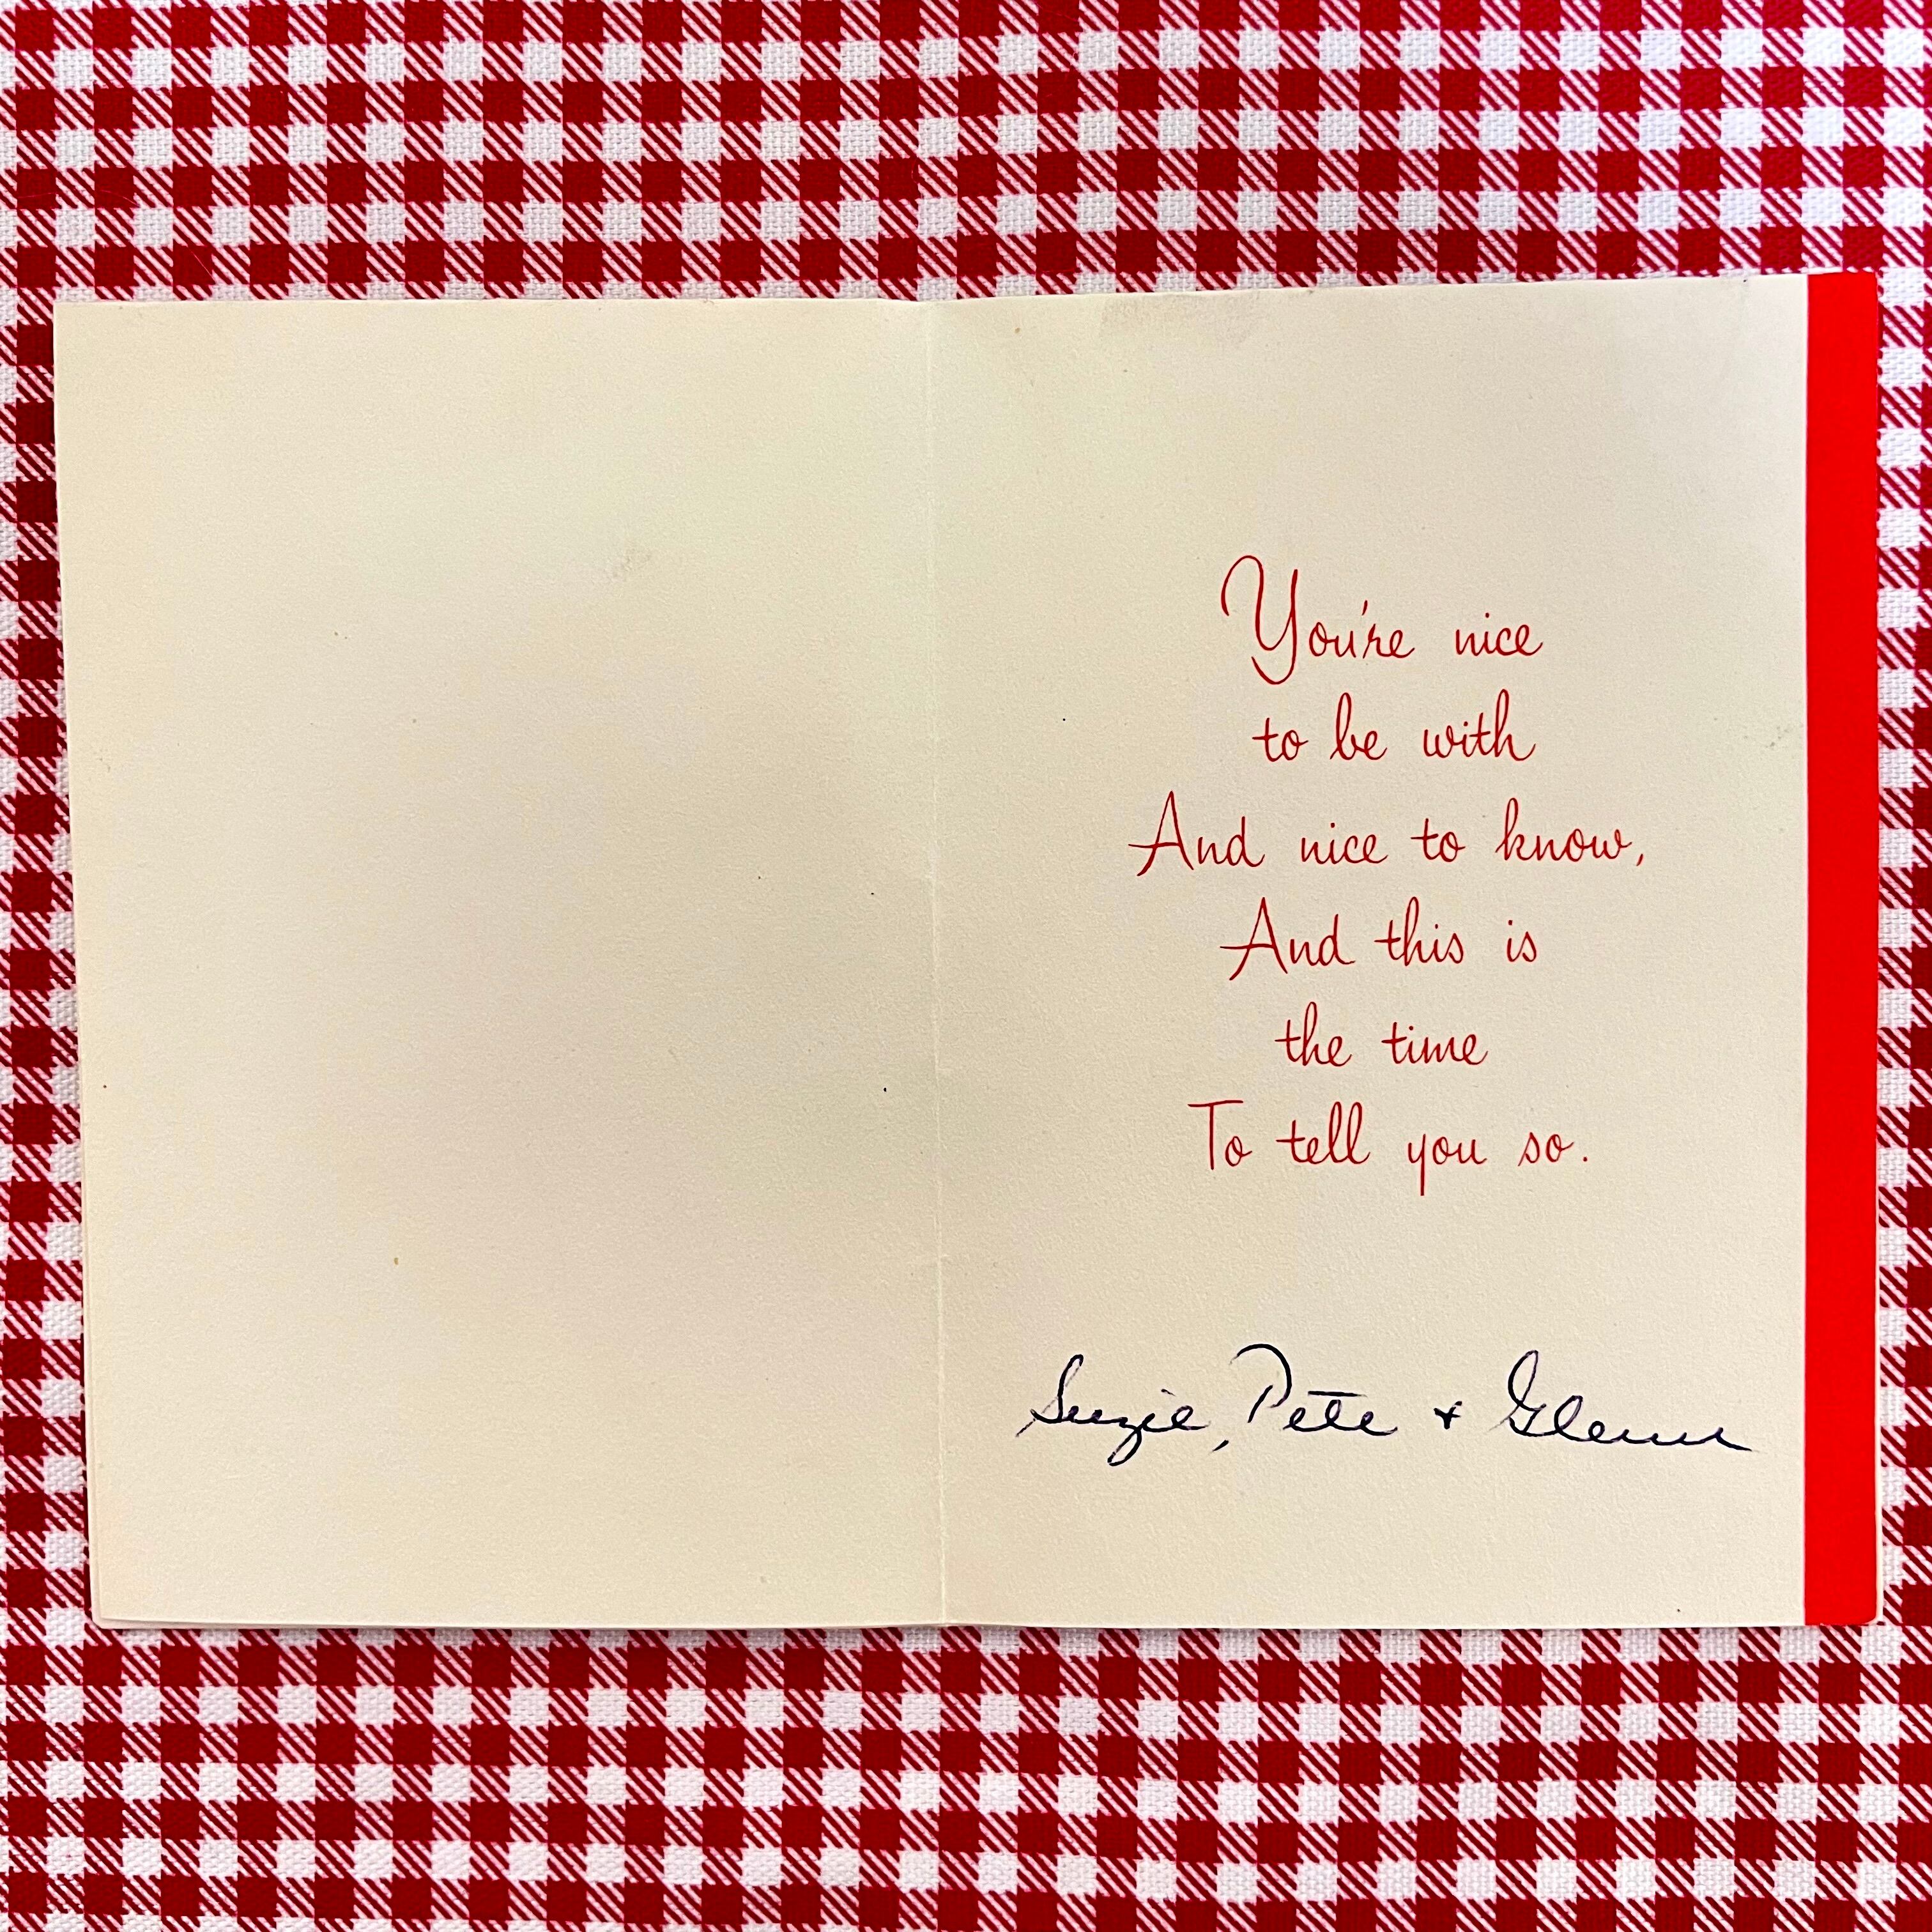 You're nice
to be with
And nice to know,
And this is
the time
To tell you so.
Suzie, Pete + Glenn